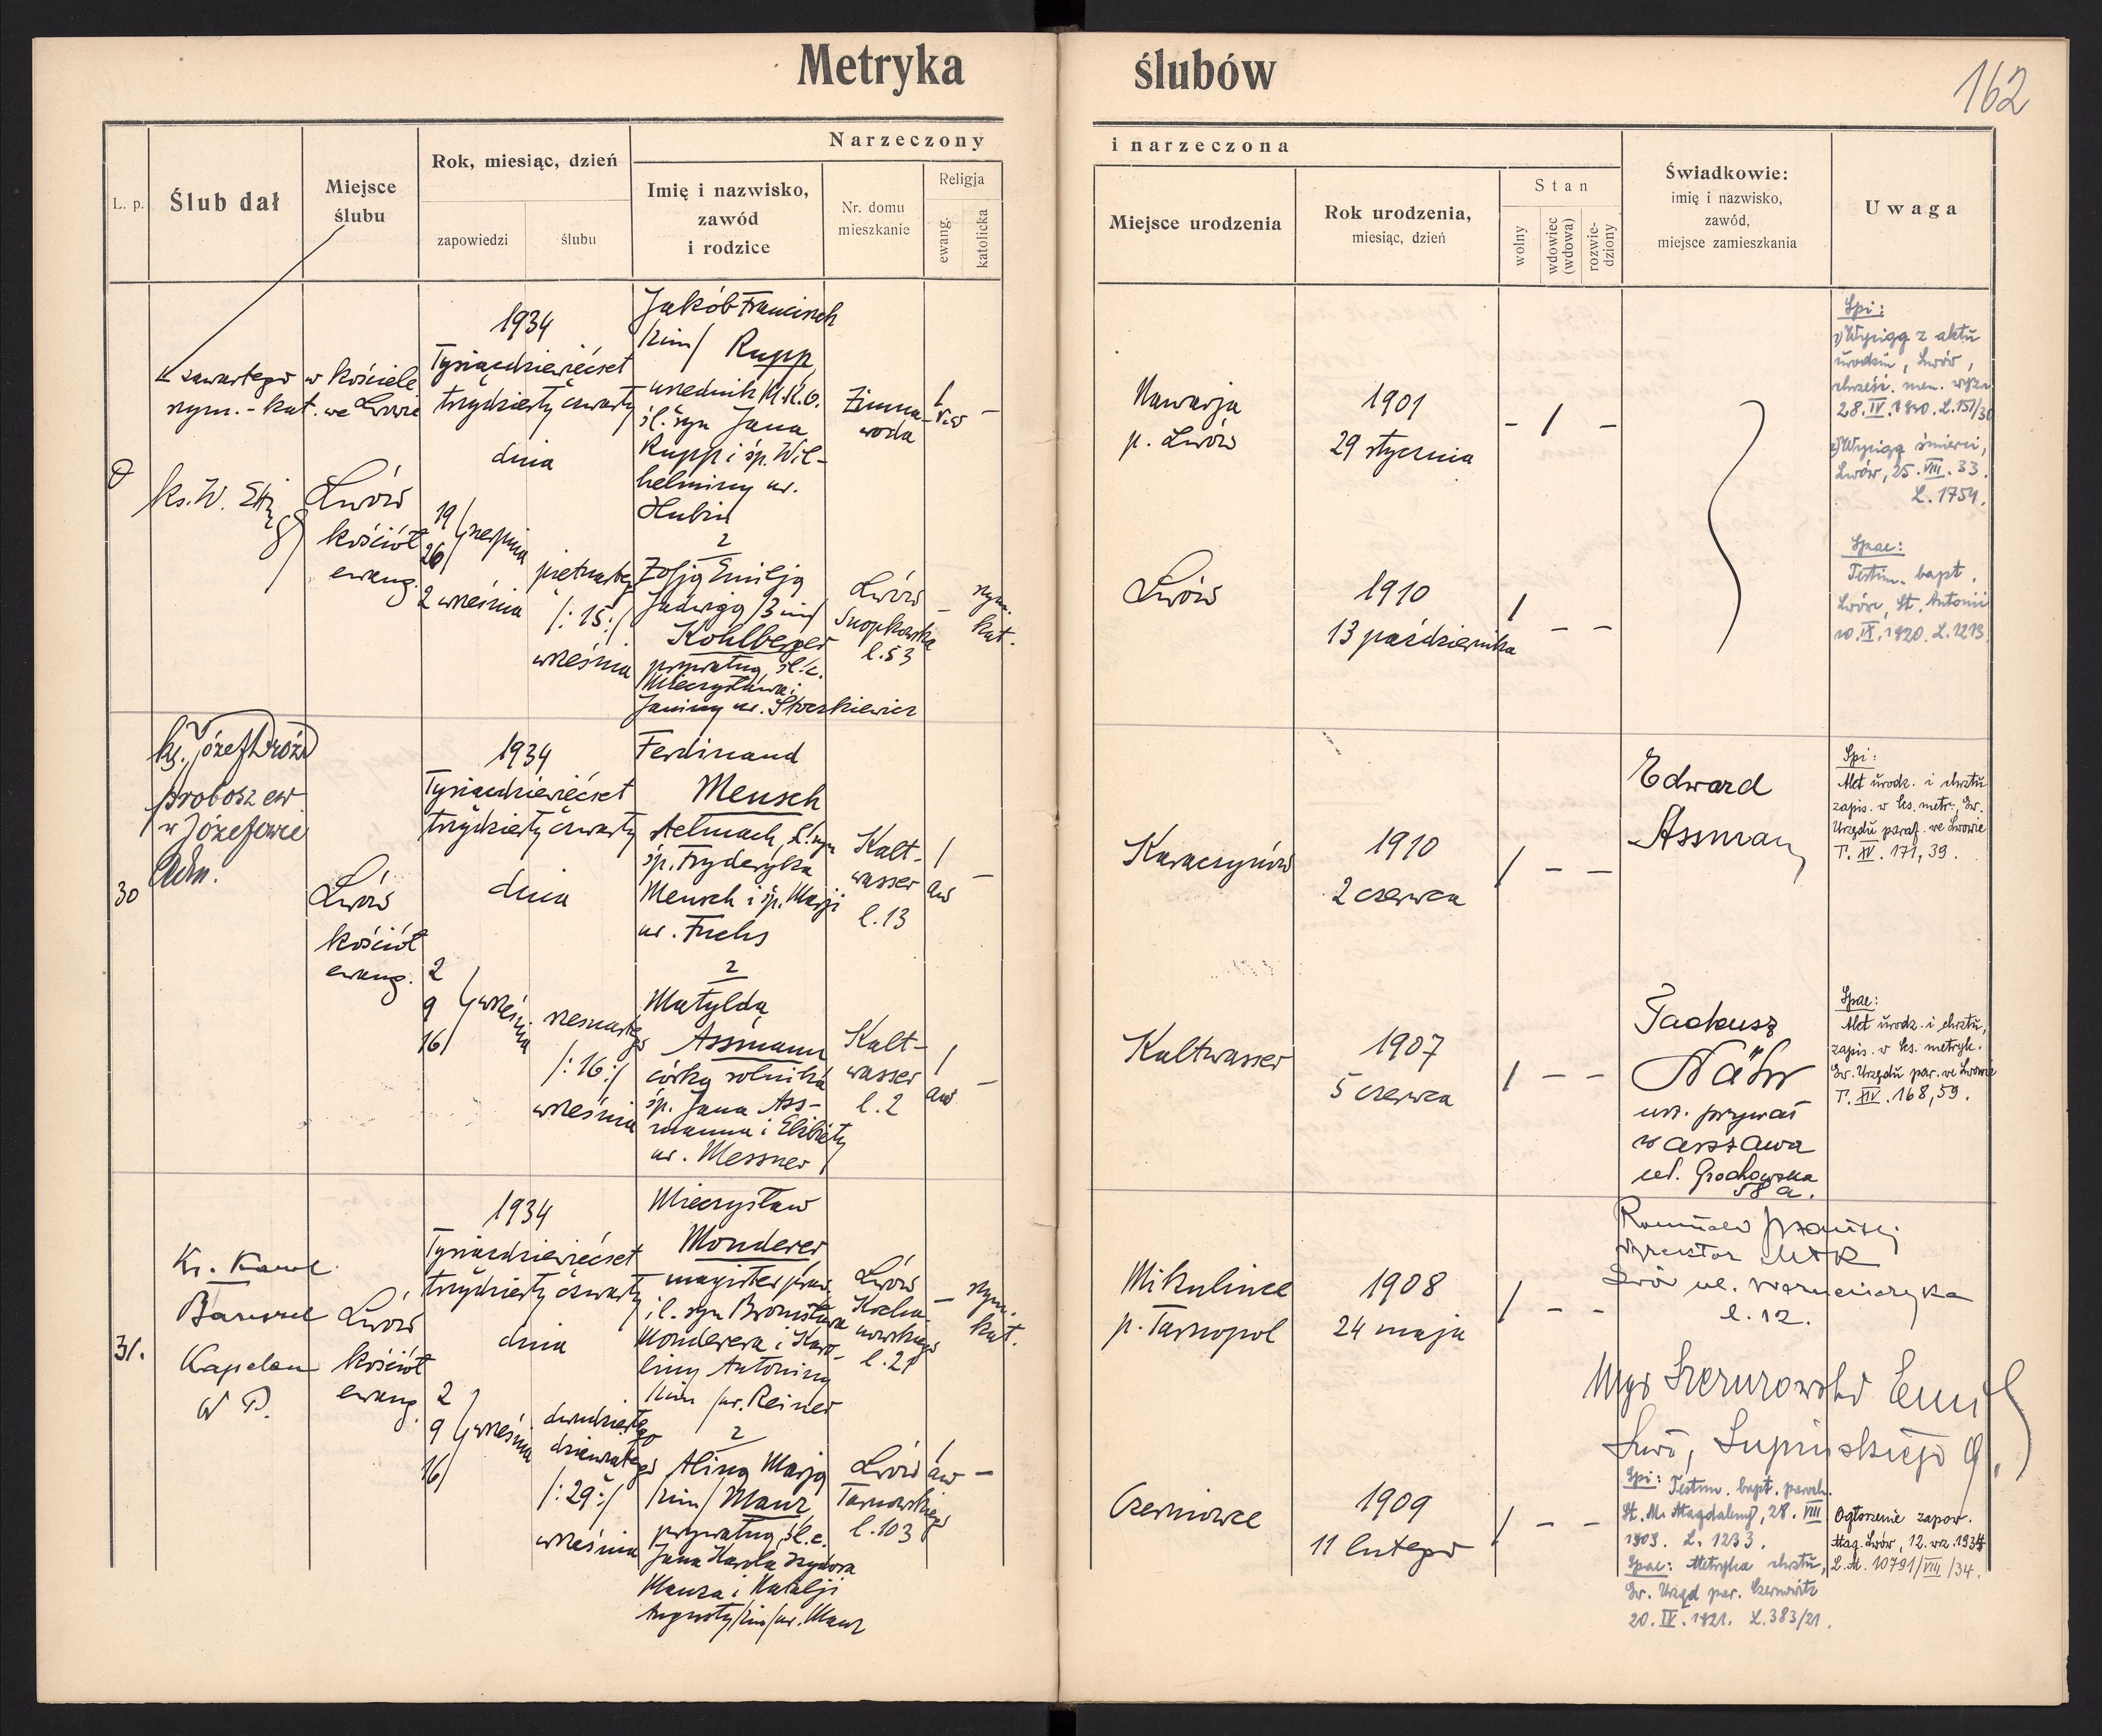 Metryka ślubów
162
L. p.
Ślub dał
Miejsce
ślubu
Rok, miesiąc, dzień
zapowiedzi
ślubu
Narzeczony
Imię i nazwisko,
zawód
i rodzice
Nr. domu
mieszkanie
Religja
ewang.
katolicka
i narzeczona
Miejsce urodzenia
Rok urodzenia,
miesiąc, dzień
Stan
wolny
wdowiec
(wdowa)
rozwie-
dziony
Świadkowie:
imię i nazwisko,
zawód,
miejsce zamieszkania
Uwaga
zawartego w kościele
rzym.-kat. we Lwowie
ks. W.
Lwów
kościół
ewang.
1934
Tysiącdziewięćset
trzydziesty czwarty
dnia
19
26
sierpnia
2 września
piętnastego
/: 15 :/
września
Jakób Franciszek
/2im/ Rupp
urzędnik M.K.O.
śl. syn Jana
Rupp i śp. Wil-
helminy ur.
Hubin
2
Zofja Emilja
Jadwiga /3 im/
Kohlberger
prywatna, śl. c.
Mieczysława i
Janiny ur. Stoczkiewicz
Zimna-
woda
1
–
Lwów
Snopkowska
l. 53
–
rzym.
kat.
Nawarja
p. Lwów
1901
29 stycznia
- 1 -
Lwów
1910
13 października
1 - -
Spi:
1) Wyciąg z aktu
urodzin, Lwów,
chrześć. men. wyzn.
28.IV.1930. L.151/30
2) Wyciąg śmierci,
Lwów, 25.VIII.33.
L. 1754.
Spae:
Testim. bapt.
Lwów, St. Antonii
10.IX.1920. L.1213
30
ks. Józef Dróżd
probosz ew
w Józefowie
Adm.
Lwów
kościół
ewang.
1934
Tysiącdziewięćset
trzydziesty czwarty
dnia
2
9
16
września
szesnastego
/: 16 :/
września
Ferdinand
Mensch
stelmach, śl. syn
śp. Fryderyka
Mensch i śp. Marji
ur. Fuchs
2
Matylda
Assmann
córka rolnika
śp. Jana Ass-
manna i Elżbiety
ur. Messner
Kalt-
wasser
l. 13
1
aw
–
Kalt-
wasser
l. 2
1
aw
–
Karaczynów
1910
2 czerwca
1 - -
Kaltwasser
1907
5 czerwca
1 - -
Edward
Assman
Tadeusz
Nähr
urz. prywat
Warszawa
ul. Grochowska
58 a.
Spi:
Akt urodz. i chrztu
zapis. w ks. metr. Ew.
Urzędu paraf. we Lwowie
T. XV. 171, 39.
Spae:
Akt urodz. i chrztu,
zapis. w ks. metryk.
Ew. Urzędu par. we Lwowie
T. XIV. 168, 59.
31.
Ks. Karol
Kapelan
W P.
Lwów
kościół
ewang.
1934
Tysiącdziewięćset
trzydziesty czwarty
dnia
2
9
16
września
dwudziestego
dziewiątego
/: 29 :/
września
Mieczysław
Monderer
magister praw,
śl. syn Bronisława
Monderera i Karo-
liny Antoniny
/2im/ ur. Reiner
2
Alina Marja
/2im/ Manz
prywatna, śl. c.
Jana Karola Izydora
Manza i Natalji
Augusty /2im/ ur. Manz
Lwów
Kocha-
nowskiego
l. 21
–
rzym.
kat.
Lwów
Tarnowskiego
l. 103
1
aw
–
Mikulince
p. Tarnopol
1908
24 maja
1 - -
Czerniowce
1909
11 lutego
1 - -
Romuald
dyrektor
Lwów ul. Warneńczyka
l. 12.
Mgr Szczurowski Emil
Lwów, Supińskiego 9.
Spi: Testim. bapt. paroch.
St. M. Magdaleny, 28.VIII
1909. L. 1233.
Spae: Metryka chrztu,
Ew. Urząd par. Czernowitz
20.IV.1921. L.383/21.
Ogłoszenie zapow.
Mag. Lwów, 12. wrz. 1934
L.M. 10791/VIII/34.